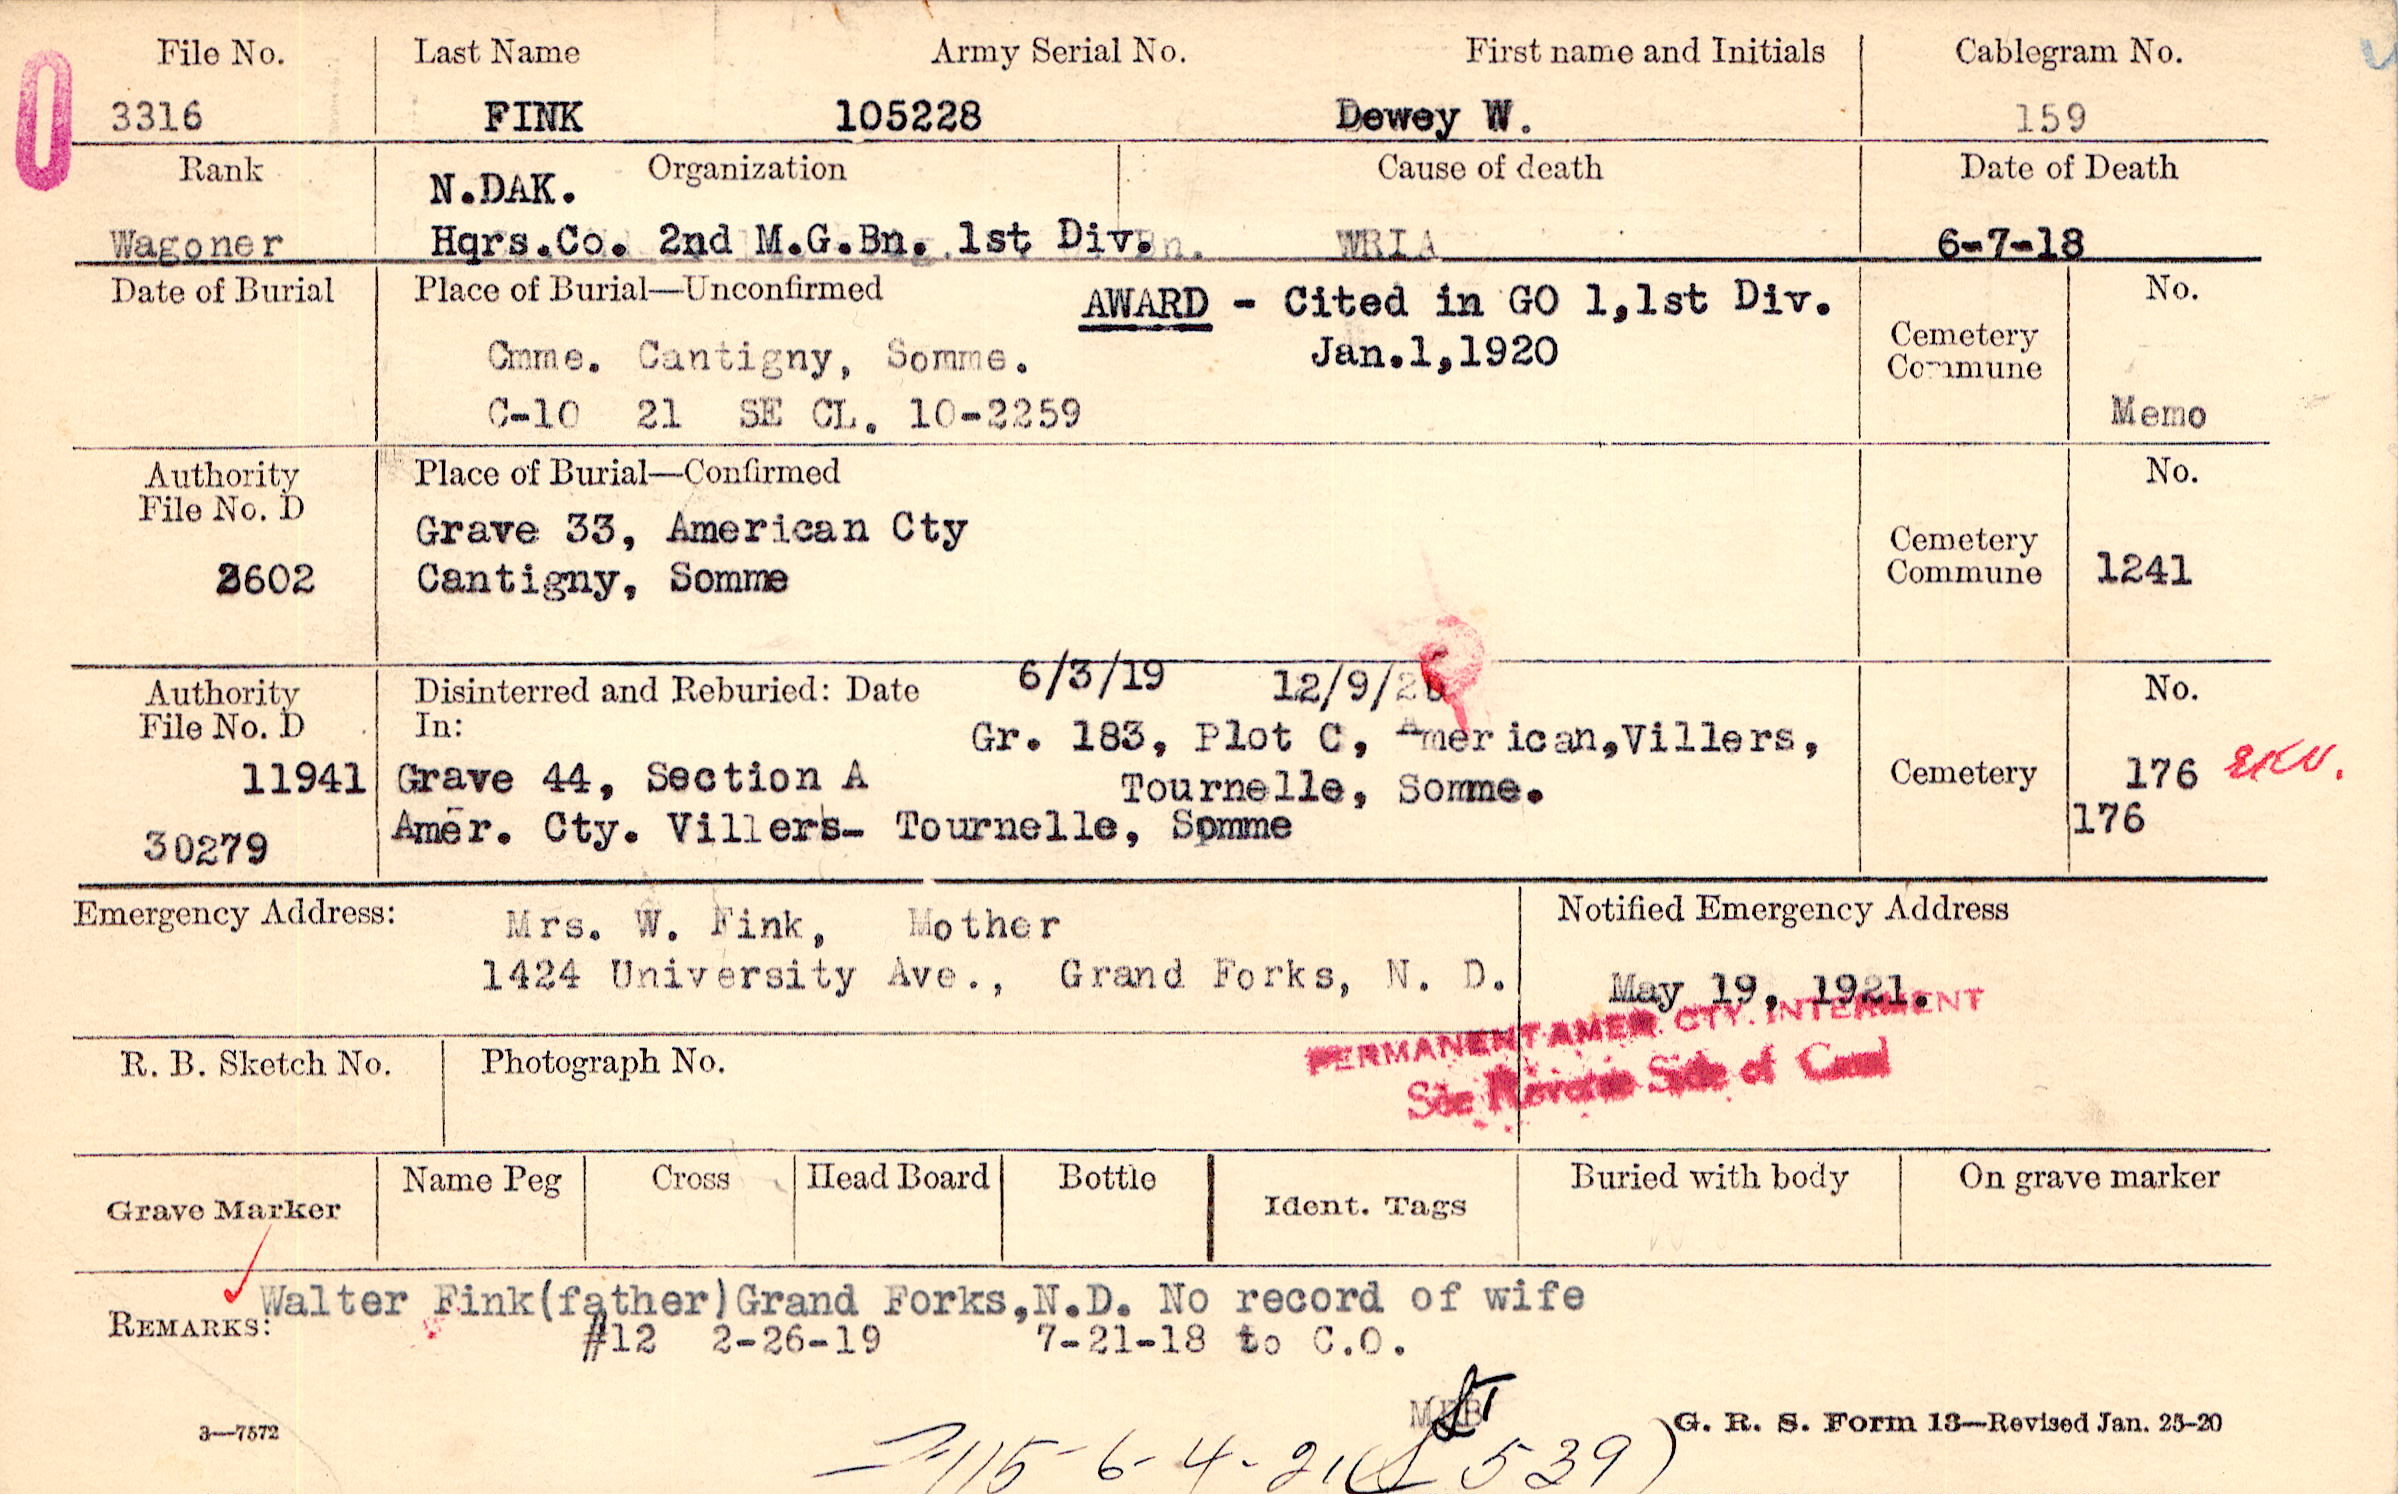 File No. Last Name Army Serial No. First name and Initials Cablegram No.
3316 FINK 105228 Dewey W. 159
Rank Organization Cause of death Date of Death
N.DAK.
Wagoner Hqrs.Co. 2nd M.G.Bn. 1st Div. WRIA 6-7-18
Date of Burial Place of Burial—Unconfirmed No.
AWARD - Cited in GO 1,1st Div.
Jan.1,1920
Cmme. Cantigny, Somme.
Cemetery
Commune
C-10 21 SE CL. 10-2259 Memo
Authority Place of Burial—Confirmed No.
File No. D
Grave 33, American Cty
Cemetery
Commune 1241
2602 Cantigny, Somme
6/3/19 12/9/
Authority Disinterred and Reburied: Date No.
File No. D In:
Gr. 183, Plot C, American,Villers,
11941 Grave 44, Section A Tournelle, Somme. Cemetery 176
Amer. Cty. Villers- Tournelle, Somme 176
30279
Emergency Address: Mrs. W. Fink, Mother Notified Emergency Address
1424 University Ave., Grand Forks, N. D. May 19, 1921.
PERMANENT AMER. CTY. INTERMENT
See Reverse Side of Card
R. B. Sketch No. Photograph No.
Grave Marker Name Peg Cross Head Board Bottle Ident. Tags Buried with body On grave marker
Walter Fink(father)Grand Forks,N.D. No record of wife
REMARKS: #12 2-26-19 7-21-18 to C.O.
3—7572 G. R. S. Form 13—Revised Jan. 25-20
6-4-21 539)